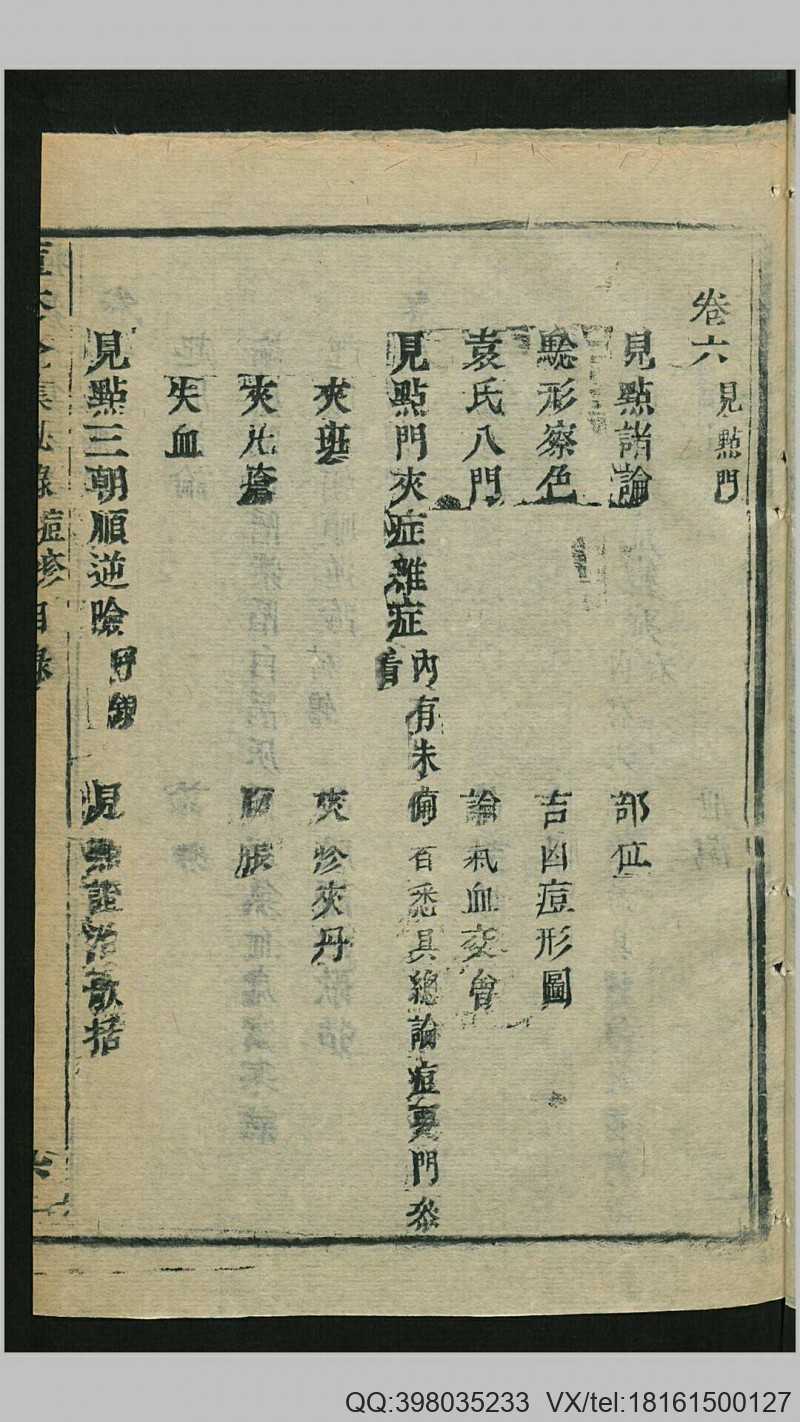 卷六 見點門
見點諸論 部位
驗形察色 吉凶痘形圖
袁氏八門 論氣血交會
見點門夾症雜症 內有未備者悉具總論痘要門叅看
夾斑 夾疹夾丹
夾瘡 腹脹
失血
見點三朝順逆險 見點證治歌括
痘疹目錄
QQ:398035233 VX/tel:18161500127